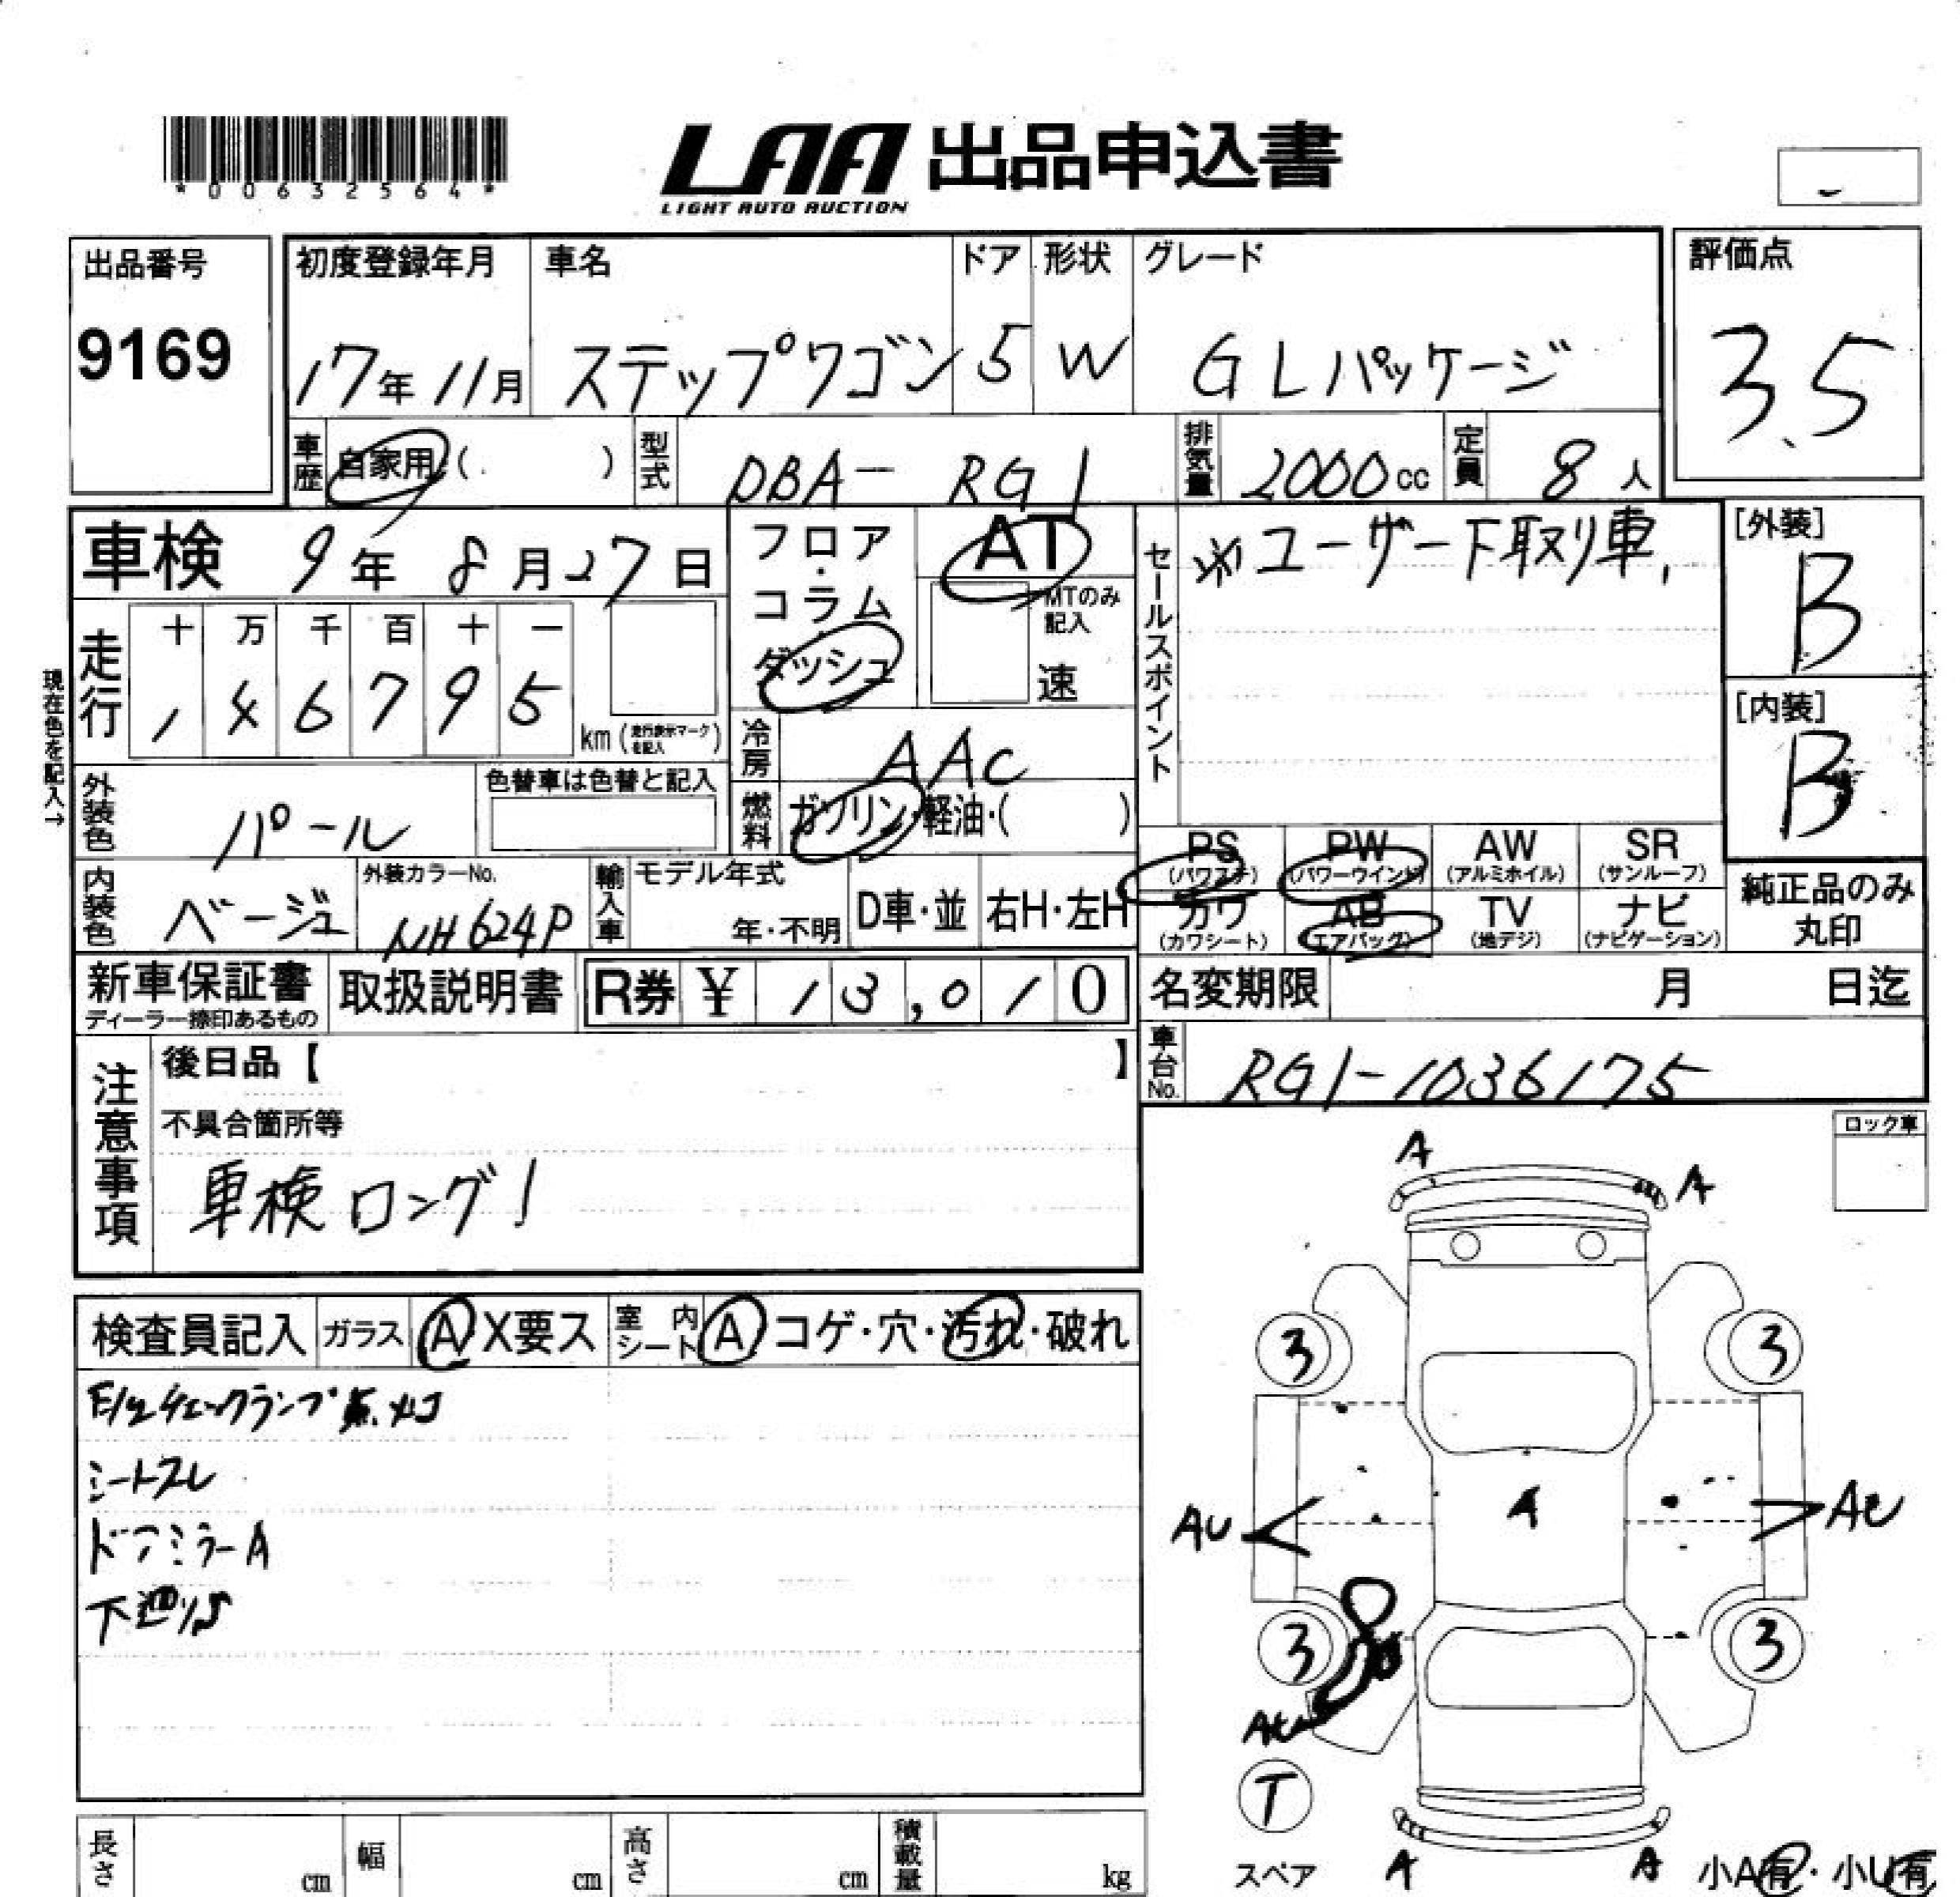 *00632564*
LAA 出品申込書
LIGHT AUTO AUCTION
出品番号
9169
初度登録年月 車名 ドア 形状 グレード
17年11月 ステップワゴン 5 W G Lパッケージ
評価点
3.5
車歴 自家用 ( ) 型式 DBA-RG1 排気量 2000cc 定員 8人
車検 9年8月27日
フロア・コラム ダッシュ
AT
MTのみ記入
速
セールスポイント
※ユーザー下取り車.
[外装]
B
[内装]
B
現在色を記入→
走行 十 万 千 百 十 一
1 4 6 7 9 5 km (走行表示マークを記入)
冷房 AAC
燃料 ガソリン・軽油・( )
外装色 パール
色替車は色替と記入
内装色 ベージュ
外装カラーNo.
NH624P
輸入車 モデル年式
年・不明 D車・並 右H・左H
PS (パワステ) PW (パワーウインド) AW (アルミホイル) SR (サンルーフ)
カワ (カワシート) AB (エアバッグ) TV (地デジ) ナビ (ナビゲーション)
純正品のみ丸印
新車保証書
ディーラー捺印あるもの
取扱説明書 R券 ¥ 13,010
名変期限 月 日迄
車台No. RG1-1036175
注意事項
後日品【 】
不具合箇所等
車検ロング!
ロック車
A
A
検査員記入 ガラス A X要ス 室内シート A コゲ・穴・汚れ・破れ
E/gチェックランプ点灯
シートスレ
ドアミラーA
下廻りS
3 3
AU A AU
3 3
AU
T
スペア
A A
小A有・小U有
長さ cm 幅 cm 高さ cm 積載量 kg